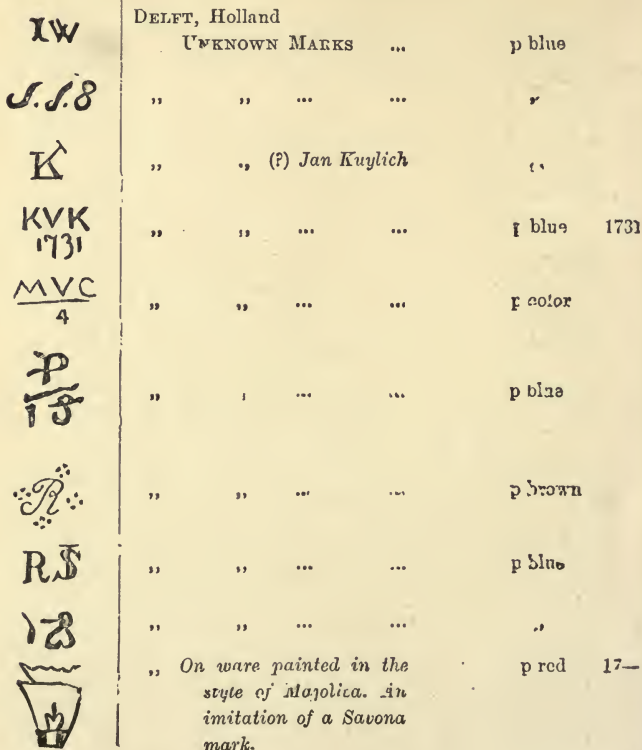 IW DELFT, Holland
UNKNOWN MARKS ... p blue
J.J.8 ,, ,, ... ... ,,
K ,, ,, (?) Jan Kuylich ,,
KVK ,, ,, ... ... p blue 1731
1731
MVC ,, ,, ... ... p color
4
P ,, ,, ... ... p blue
15
R ,, ,, ... ... p brown
RS ,, ,, ... ... p blue
,, ,, ... ... ,,
,, On ware painted in the p red 17—
style of Majolica. An
imitation of a Savona
mark.